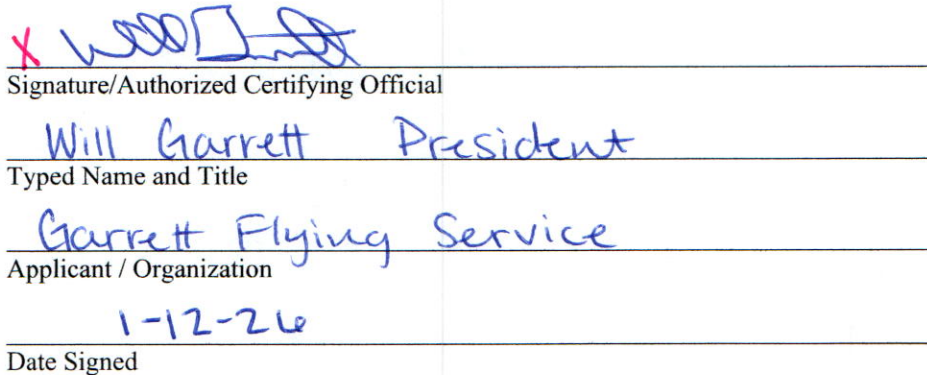 X Will Garrett
Signature/Authorized Certifying Official
Will Garrett President
Typed Name and Title
Garrett Flying Service
Applicant / Organization
1-12-26
Date Signed